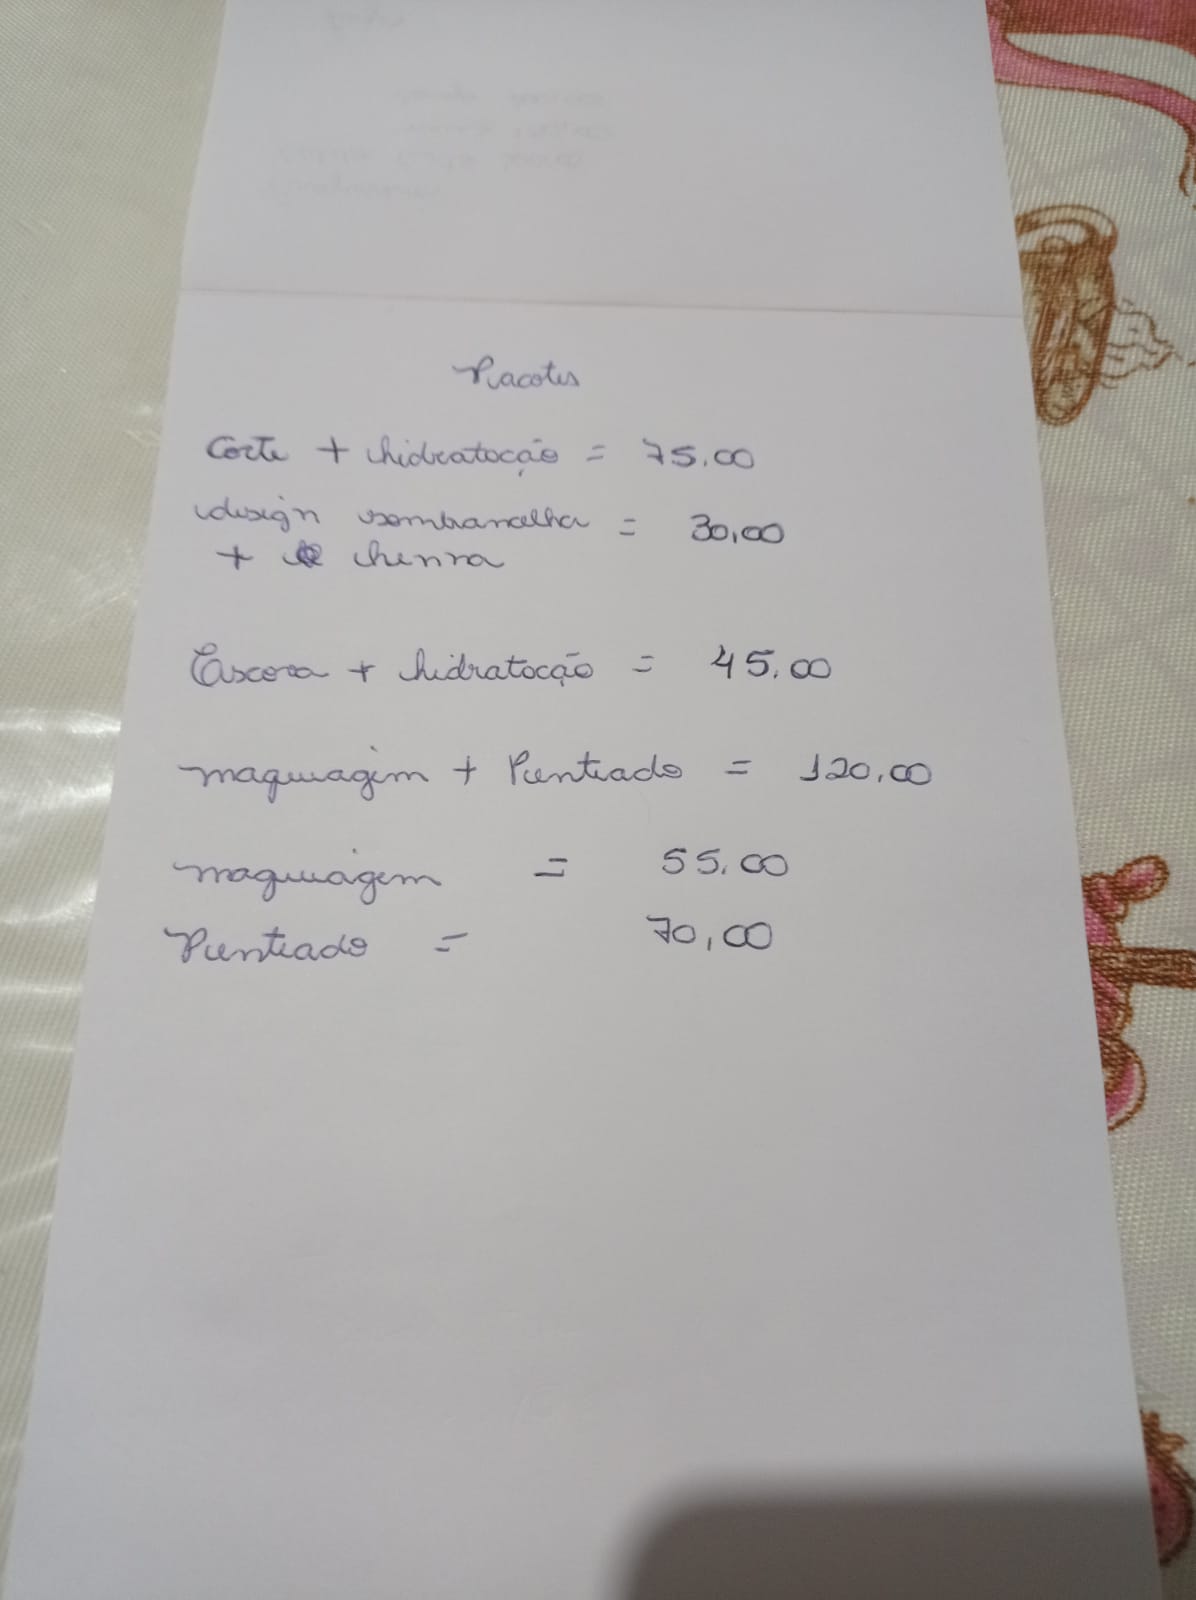 Pacotes
Corte + hidratação = 75,00
design sombrancelha = 30,00
+ henna
Escova + hidratação = 45,00
maquiagem + Penteado = 120,00
maquiagem = 55,00
Penteado = 70,00